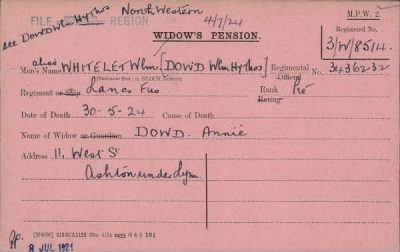 FILE REGION North Western
M.P.W. 2.
see DOWD Wm Hythos 4/7/24
WIDOW'S PENSION.
Registered No.
3/W/8514.
alias
Man's Name WHITELET Wm [DOWD Wm Hythos] Regimental No. 3436232
(Surname first: in BLOCK letters) Official
Regiment or Ship Lancs Fus Rank Pte
Rating
Date of Death 30-5-24 Cause of Death
Name of Widow or Guardian DOWD. Annie
Address 11, West St
Ashton under Lyne
8 JUL 1924